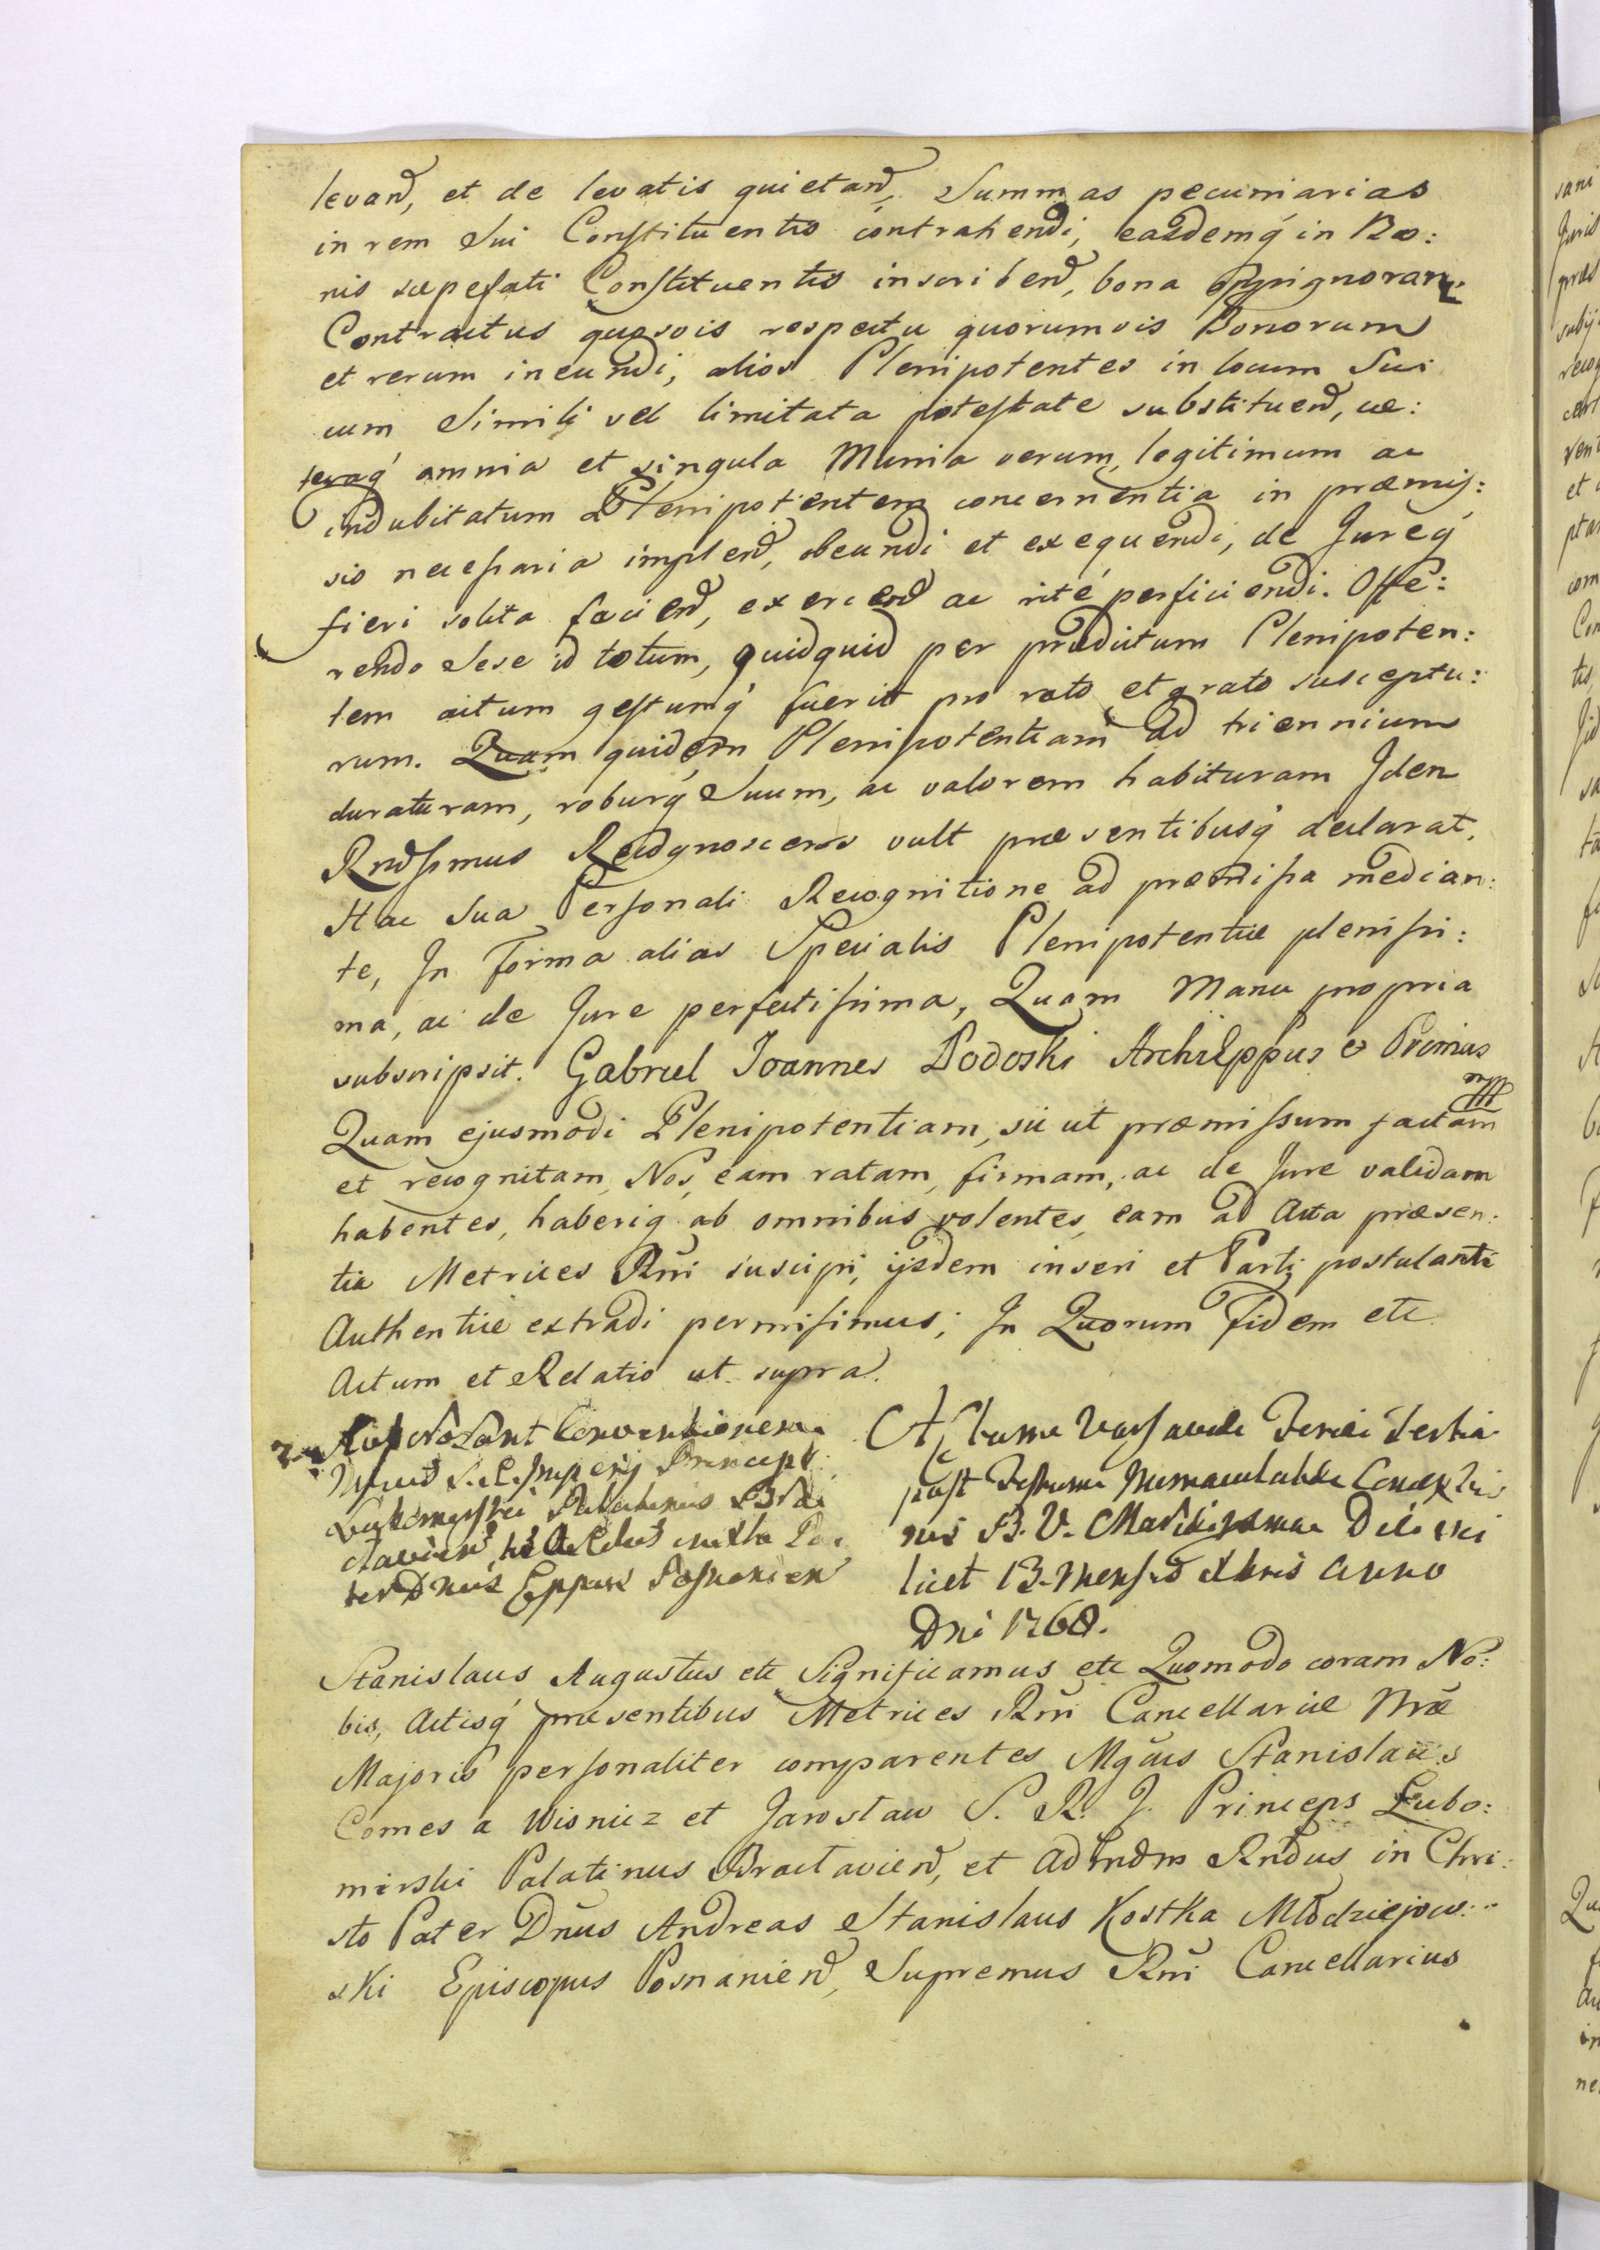 levand, et de levatis quietand, Summas pecuniarias
in rem Sui Constituentis contrahendi, easdemq́ in Bo:
nis sæpefati Constituentis inscribend, bona oppignoran:
Contractus quosvis respectu quorumvis Bonorum
et rerum ineundi, alios Plenipotentes in locum Sui
cum Simili vel limitata potestate substituend, cæ:
teraq́ omnia et singula Munia verum, legitimum ac
indubitatum Plenipotentem concernentia in præmis:
sis necessaria implend, obeundi et exequendi, de Jureq́
fieri solita faciend, exercend ac rité perficiendi. Offe:
rendo Sese id totum, quidquid per prædictum Plenipoten:
tem actum gestumq́ fuerit pro rato et grato susceptu:
rum. Quam quidem Plenipotentiam ad triennium
duraturam, roburq́ Suum, ac valorem habituram Idem
Rndssimus Recognoscens vult præsentibusq́ declarat.
Hac Sua Personali Recognitione ad præmissa median:
te, In Forma alias Specialis Plenipotentiæ plenissi:
ma, ac de Jure perfectissima, Quam Manu propria
subscripsit. Gabriel Joannes Podoski ArchiEppus & Primas
mpp
Quam ejusmodi Plenipotentiam, sic ut præmissum factam
et recognitam, Nos, eam ratam, firmam, ac de Jure validam
habentes, haberiq ab omnibus volentes, eam ad Acta præsen:
tia Metrices Rni suscipi, ijsdem inseri et Parti postulanti
Authentice extradi permisimus; In Quorum Fidem etc
Actum et Relatio ut supra.
Conventionem
S. R. Imperij Princeps
Palatinus Bra
claviend,
ter Dnus Eppus Posnanien
Actum Varsaviæ Feria Tertia
post Festum Immaculatæ Conceptio
nis B. V. Mariæ Die sci
licet 13. Mensis Xbris Anno
Dni 1768.
Stanislaus Augustus etc Significamus etc Quomodo coram No:
bis, Actisq́ præsentibus Metrices Rni Cancellariæ Nræ
Majoris personaliter comparentes Mgcus Stanislaus
Comes a Wisnicz et Jarosław S. R. J. Princeps Lubo:
mirski Palatinus Braclaviend, et Adm Rndus in Chri:
sto Pater Dnus Andreas Stanislaus Kostka Młodziejow:
ski Episcopus Posnaniend, Supremus Rni Cancellarius